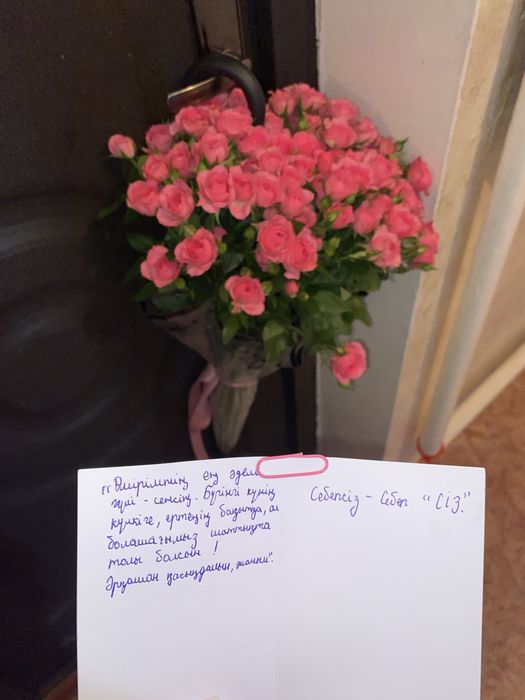 "Өмірімнің ең әдемі
гүлі - сенсің. Бүгінгі күнің
күлкіге, ертеңің бақытқа, ал
болашағымыз шаттыққа
толы болсын !
Әрқашан қасыңдамын, жаным".
Себепсіз - Себеп "СІЗ."